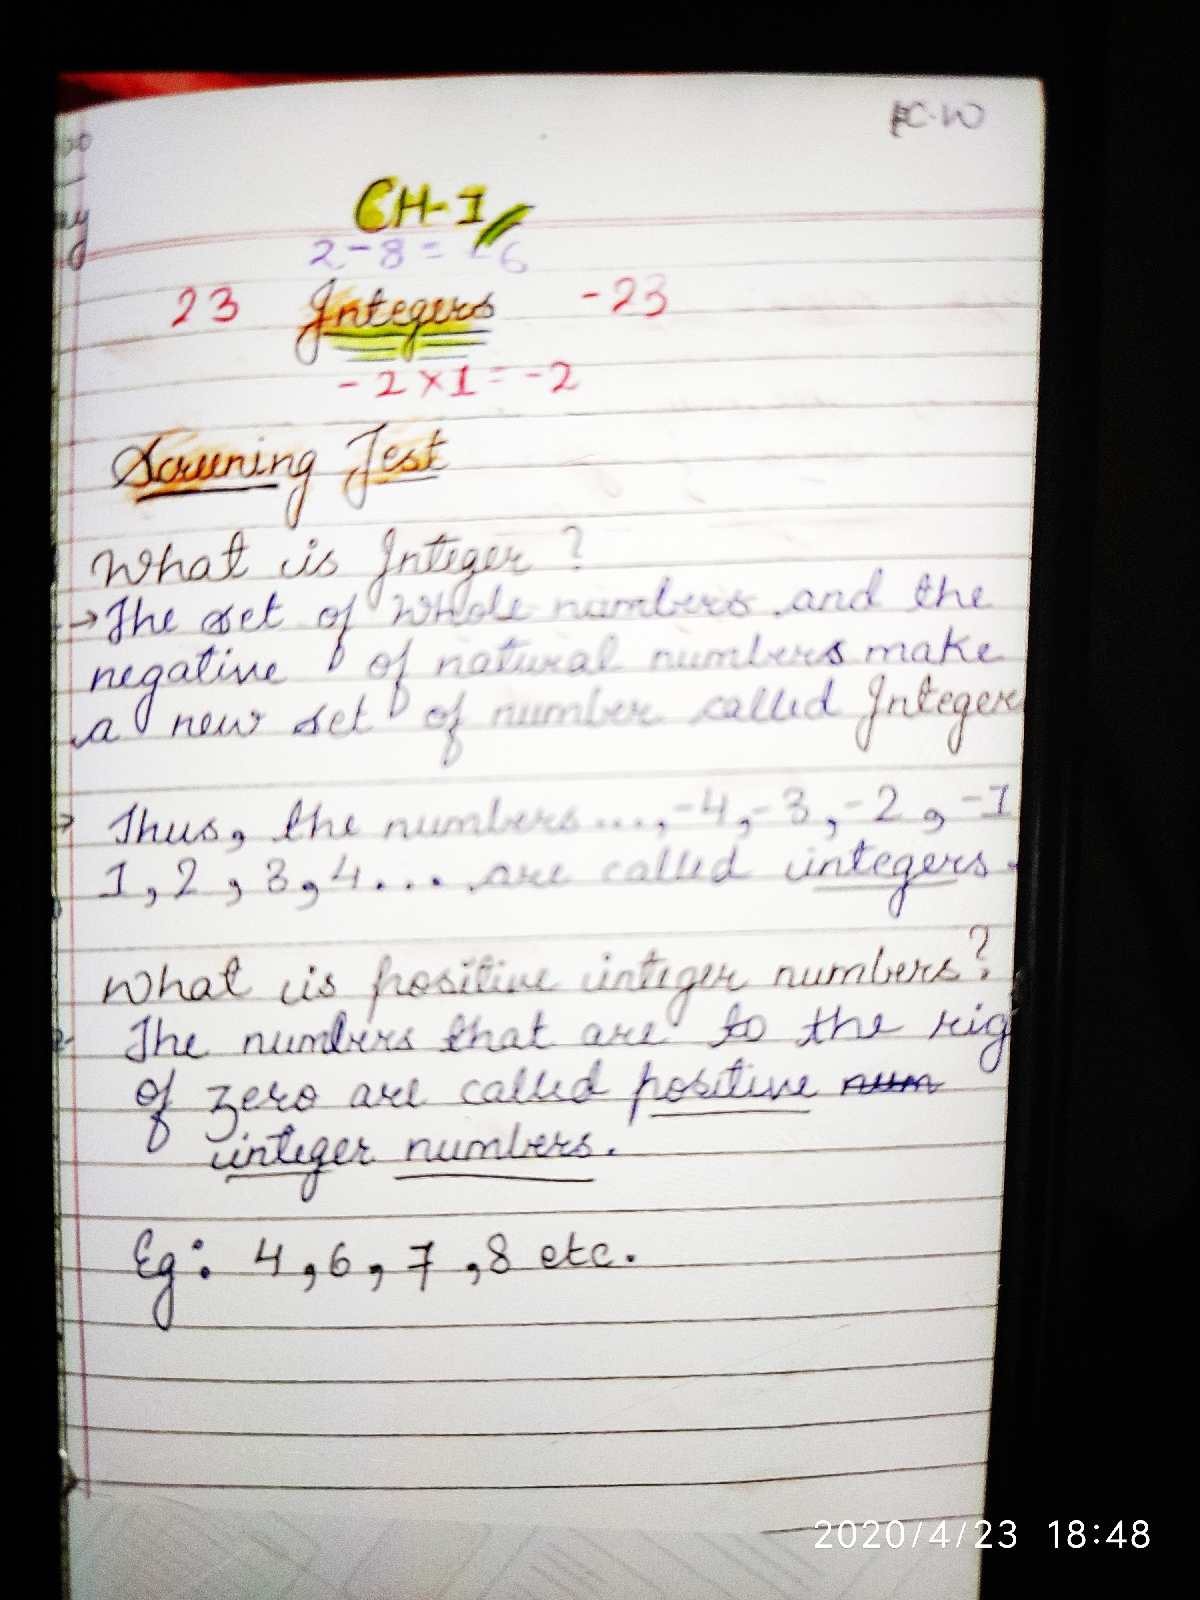 C.W
CH-1
2-8 = -6
23 Integers -23
-2×1 = -2
Screening Test
What is Integer ?
→ The set of whole numbers and the
negative of natural numbers make
a new set of number called Integer
→ Thus, the numbers ..., -4, -3, -2, -1
1, 2, 3, 4 ... are called integers.
What is positive integer numbers?
The numbers that are to the rig
of zero are called positive num
integer numbers.
Eg: 4, 6, 7, 8 etc.
2020/4/23 18:48